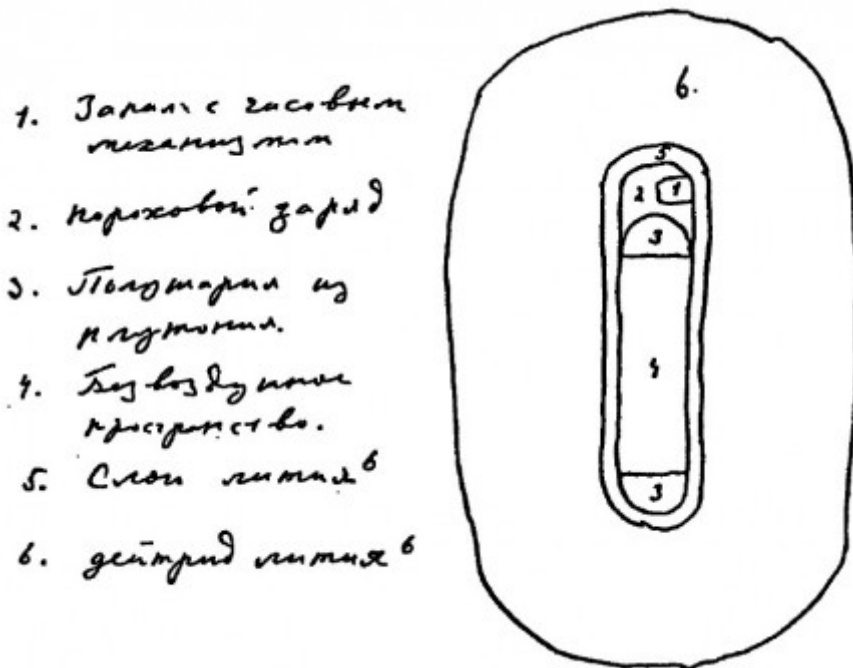 1. Запал с часовым
механизмом
2. пороховой заряд
3. Полушария из
плутония.
4. Безвоздушное
пространство.
5. Слой лития⁶
6. дейтрид лития⁶
6.
5
2 1
3
4
3